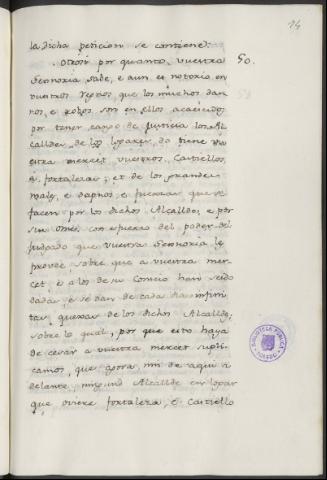 14
la dicha peticion se contiene.
50.
Otrosi por quanto, vuestra
Sennoria sabe, e aun es notorio en
vuestros regnos, que los muchos dan
nos, e robos son en ellos acaescidos
por tener cargo de justicia los Al
calldes de los logares, do tiene vu
estra mercet vuestros Castiellos,
e fortalezas; et de los grandes
males, e dapnos, e fuerzas que se
facen por los dichos Alcalldes, e por
sus omes, con esfuerzo del poder del
judgado que vuestra Sennoria les
provée, sobre que a vuestra mer
cet, e a los de su Consejo han seido
dadas, e se dan de cada dia infini
tas quexas de los dichos Alcalldes,
sobre lo qual, por que esto haya
de cesar a vuestra mercet supli
camos, que agora, nin de aqui a
delante, ningund Alcallde en logar
que oviere fortaleza, e Castiello
BIBLIOTECA PUBLICA
TOLEDO